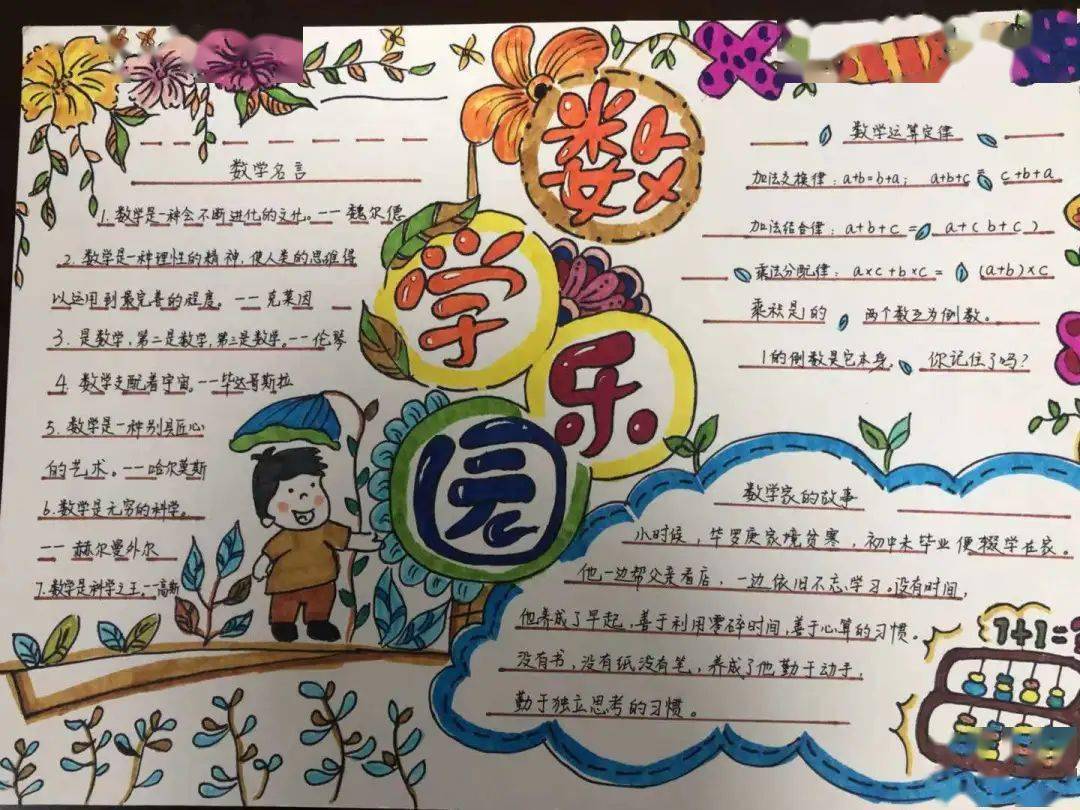 数学乐园
数学名言
1. 数学是一种会不断进化的文化。—— 魏尔德
2. 数学是一种理性的精神，使人类的思维得
以运用到最完善的程度。—— 克莱因
3. 是数学，第二是数学，第三是数学。——伦琴
4. 数学支配着宇宙。——毕达哥斯拉
5. 数学是一种别具匠心
的艺术。——哈尔莫斯
6. 数学是无穷的科学。
—— 赫尔曼外尔
7. 数学是科学之王。—高斯
数学运算定律
加法交换律：a+b=b+a； a+b+c = c+b+a
加法结合律：a+b+c = a+( b+c )
乘法分配律： a×c+b×c= (a+b)×c
乘积是1的 两个数互为倒数。
1的倒数是它本身。 你记住了吗？
数学家的故事
小时候，华罗庚家境贫寒，初中未毕业便辍学在家。
他一边帮父亲看店，一边依旧不忘学习。没有时间，
他养成了早起，善于利用零碎时间，善于心算的习惯。
没有书，没有纸没有笔，养成了他勤于动手，
勤于独立思考的习惯。
1+1=?